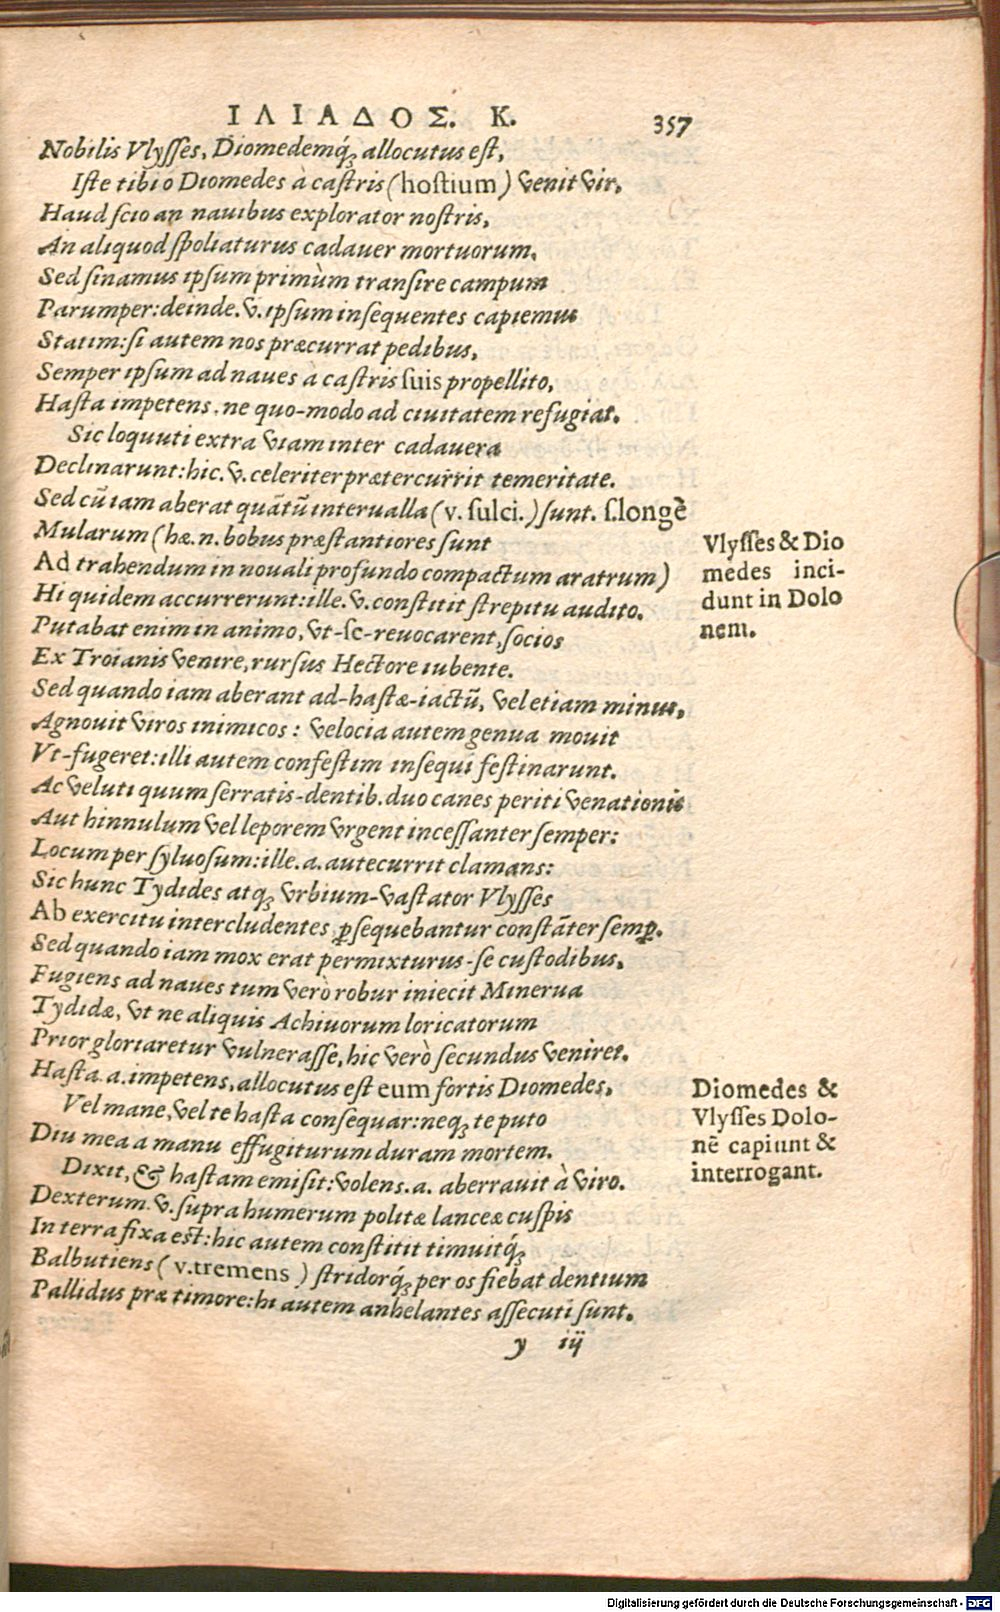 ΙΛΙΑΔΟΣ. Κ. 357
Nobilis Vlysses, Diomedemq́; allocutus est,
Iste tibi o Diomedes à castris (hostium) venit vir,
Haud scio an nauibus explorator nostris,
An aliquod spoliaturus cadauer mortuorum.
Sed sinamus ipsum primùm transire campum
Parumper: deinde. v. ipsum insequentes capiemus
Statim: si autem nos præcurrat pedibus,
Semper ipsum ad naues à castris suis propellito,
Hasta impetens, ne quo-modo ad ciuitatem refugiat.
Sic loquuti extra viam inter cadauera
Declinarunt: hic. v. celeriter prætercurrit temeritate.
Sed cū iam aberat quātū interualla (v. sulci.) sunt. s. longè
Mularum (hæ. n. bobus præstantiores sunt
Ad trahendum in nouali profundo compactum aratrum)
Hi quidem accurrerunt: ille. v. constitit strepitu audito.
Putabat enim in animo, vt-se-reuocarent, socios
Ex Troianis venire, rursus Hectore iubente.
Sed quando iam aberant ad-hastæ-iactū, vel etiam minus,
Agnouit viros inimicos: velocia autem genua mouit
Vt-fugeret: illi autem confestim insequi festinarunt.
Ac veluti quum serratis-dentib. duo canes periti venationis
Aut hinnulum vel leporem vrgent incessanter semper:
Locum per syluosum: ille. a. autecurrit clamans:
Sic hunc Tydides atq; vrbium-vastator Vlysses
Ab exercitu intercludentes ꝑsequebantur constāter semꝑ.
Sed quando iam mox erat permixturus-se custodibus,
Fugiens ad naues tum verò robur iniecit Minerua
Tydidæ, vt ne aliquis Achiuorum loricatorum
Prior gloriaretur vulnerasse, hic verò secundus veniret.
Hasta. a. impetens, allocutus est eum fortis Diomedes,
Vel mane, vel te hasta consequar: neq; te puto
Diu mea a manu effugiturum duram mortem.
Dixit, & hastam emisit: volens. a. aberrauit à viro.
Dexterum. v. supra humerum politæ lanceæ cuspis
In terra fixa est: hic autem constitit timuitq́;
Balbutiens (v. tremens) stridorq́; per os fiebat dentium
Pallidus præ timore: hi autem anhelantes assecuti sunt.
y iij
Vlysses & Dio
medes inci-
dunt in Dolo
nem.
Diomedes &
Vlysses Dolo-
nē capiunt &
interrogant.
Digitalisierung gefördert durch die Deutsche Forschungsgemeinschaft - DFG